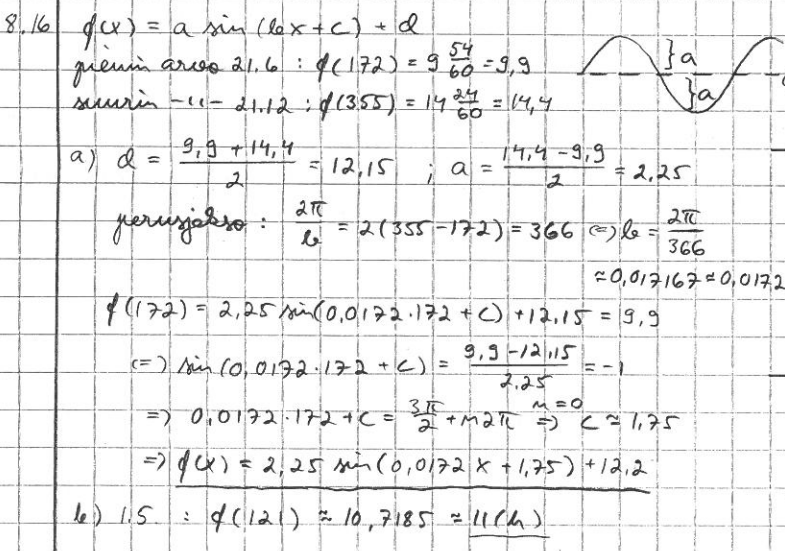 8.16 f(x) = a sin (bx + c) + d
pienin arvo 21.6 : f(172) = 9 54/60 = 9,9
suurin -"- 21.12 ; f(355) = 14 24/60 = 14,4
}a
}a
a) d = (9,9 + 14,4)/2 = 12,15 ; a = (14,4 - 9,9)/2 = 2,25
perusjakso : 2π/b = 2(355-172) = 366 <=> b = 2π/366
≈ 0,017167 ≈ 0,0172
f(172) = 2,25 sin(0,0172·172 + c) + 12,15 = 9,9
<=> sin (0,0172·172 + c) = (9,9 - 12,15)/2,25 = -1
=> 0,0172·172 + c = 3π/2 + n2π n=0 => c ≈ 1,75
=> f(x) = 2,25 sin(0,0172 x + 1,75) + 12,2
b) 1.5. : f(121) ≈ 10,7185 ≈ 11(h)